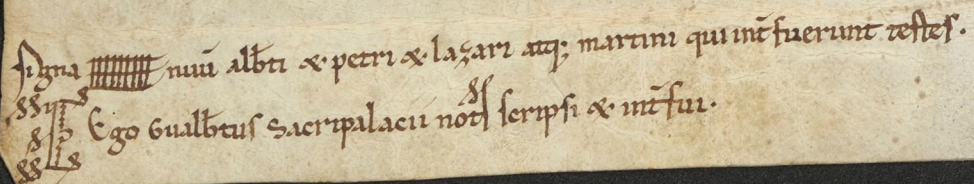 Signa nuũ alƀti & petri & lazari atq; martini qui int̃fuerunt testes.
Ego Gualƀtus sacripalacii not̃ scripsi & int̃fui.